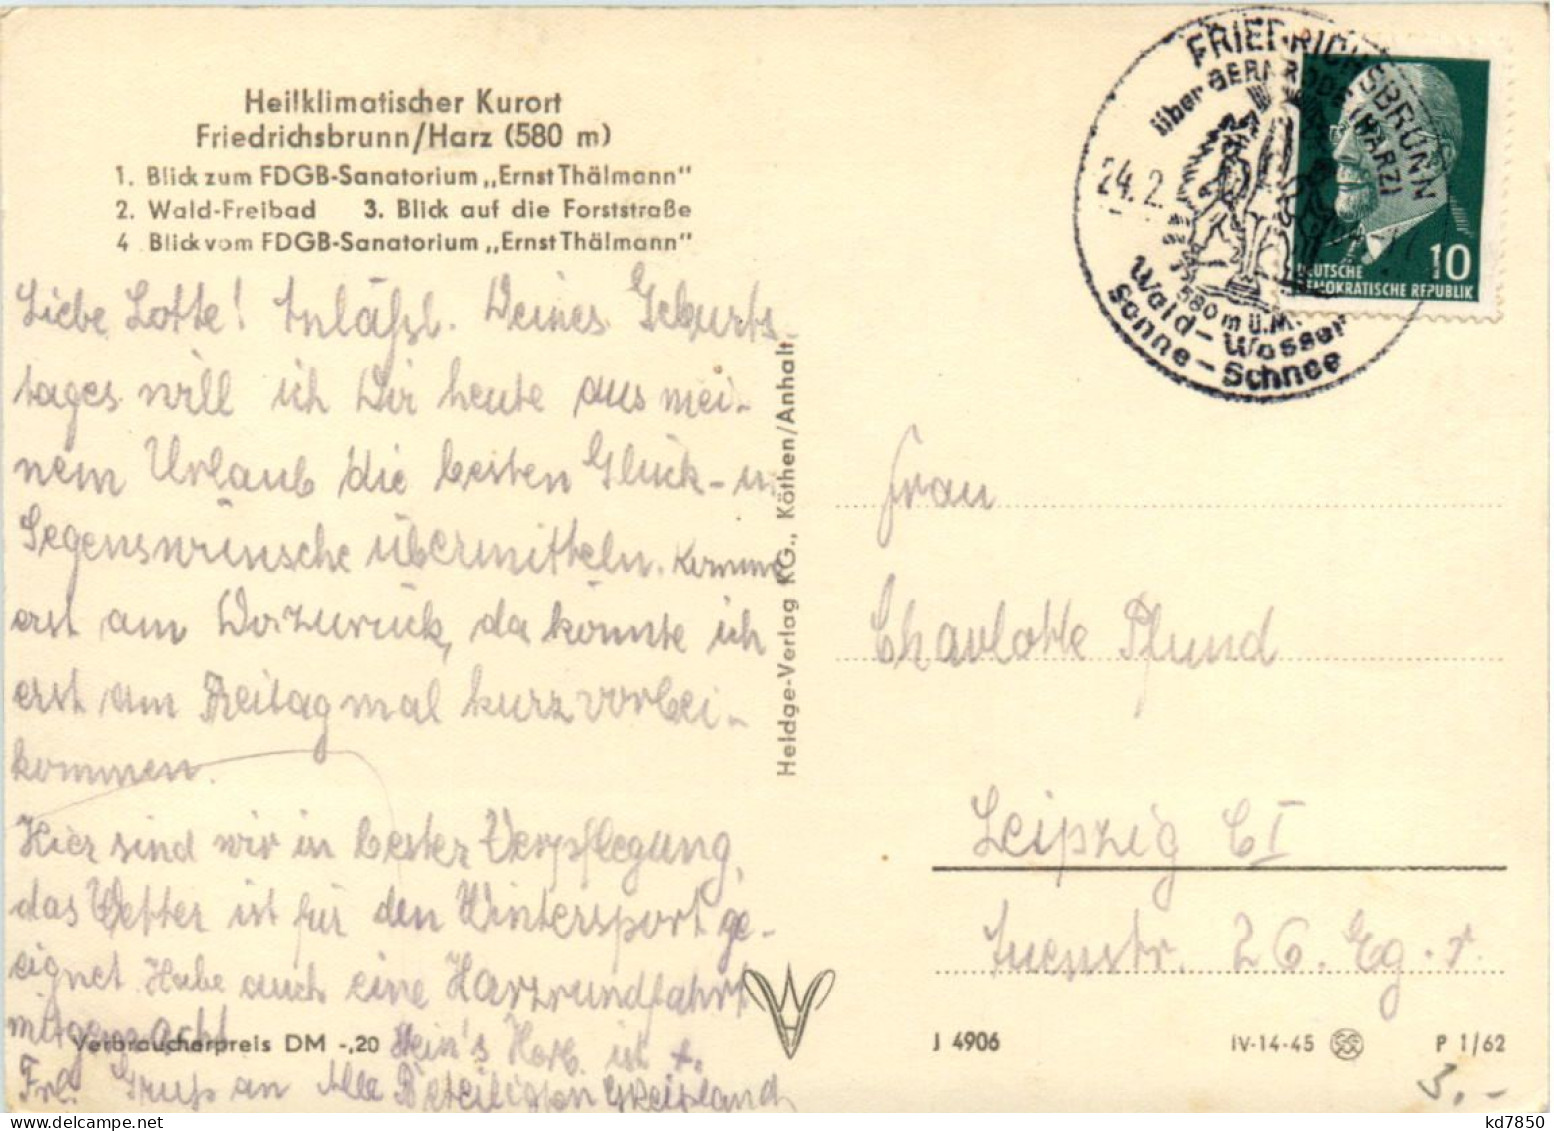 Heilklimatischer Kurort
Friedrichsbrunn/Harz (580 m)
1. Blick zum FDGB-Sanatorium „Ernst Thälmann"
2. Wald-Freibad 3. Blick auf die Forststraße
4 Blick vom FDGB-Sanatorium „Ernst Thälmann"
Liebe Lotte! Anläßl. Deines Geburts-
tages will ich Dir heute aus mei-
nem Urlaub die besten Glück- u.
Segenswünsche übermitteln. Komme
erst am Do. zurück, da könnte ich
erst am Freitag mal kurz vorbei-
kommen.
Hier sind wir in bester Verpflegung,
das Wetter ist für den Wintersport ge-
eignet. Habe auch eine Harzrundfahrt
mitgemacht.
Verbraucherpreis DM -,20
ist
Frdl. Gruß an Alle Beteiligten
Heldge-Verlag KG., Köthen/Anhalt
FRIEDRICHSBRUNN
über GERNRODE (HARZ)
24.2.
580 m ü.M.
Wald - Wasser
Sonne - Schnee
10
DEUTSCHE
DEMOKRATISCHE REPUBLIK
Frau
Charlotte Pfund
Leipzig C I
26. Eg. r.
J 4906
IV-14-45
P 1/62
3.-
kd7850